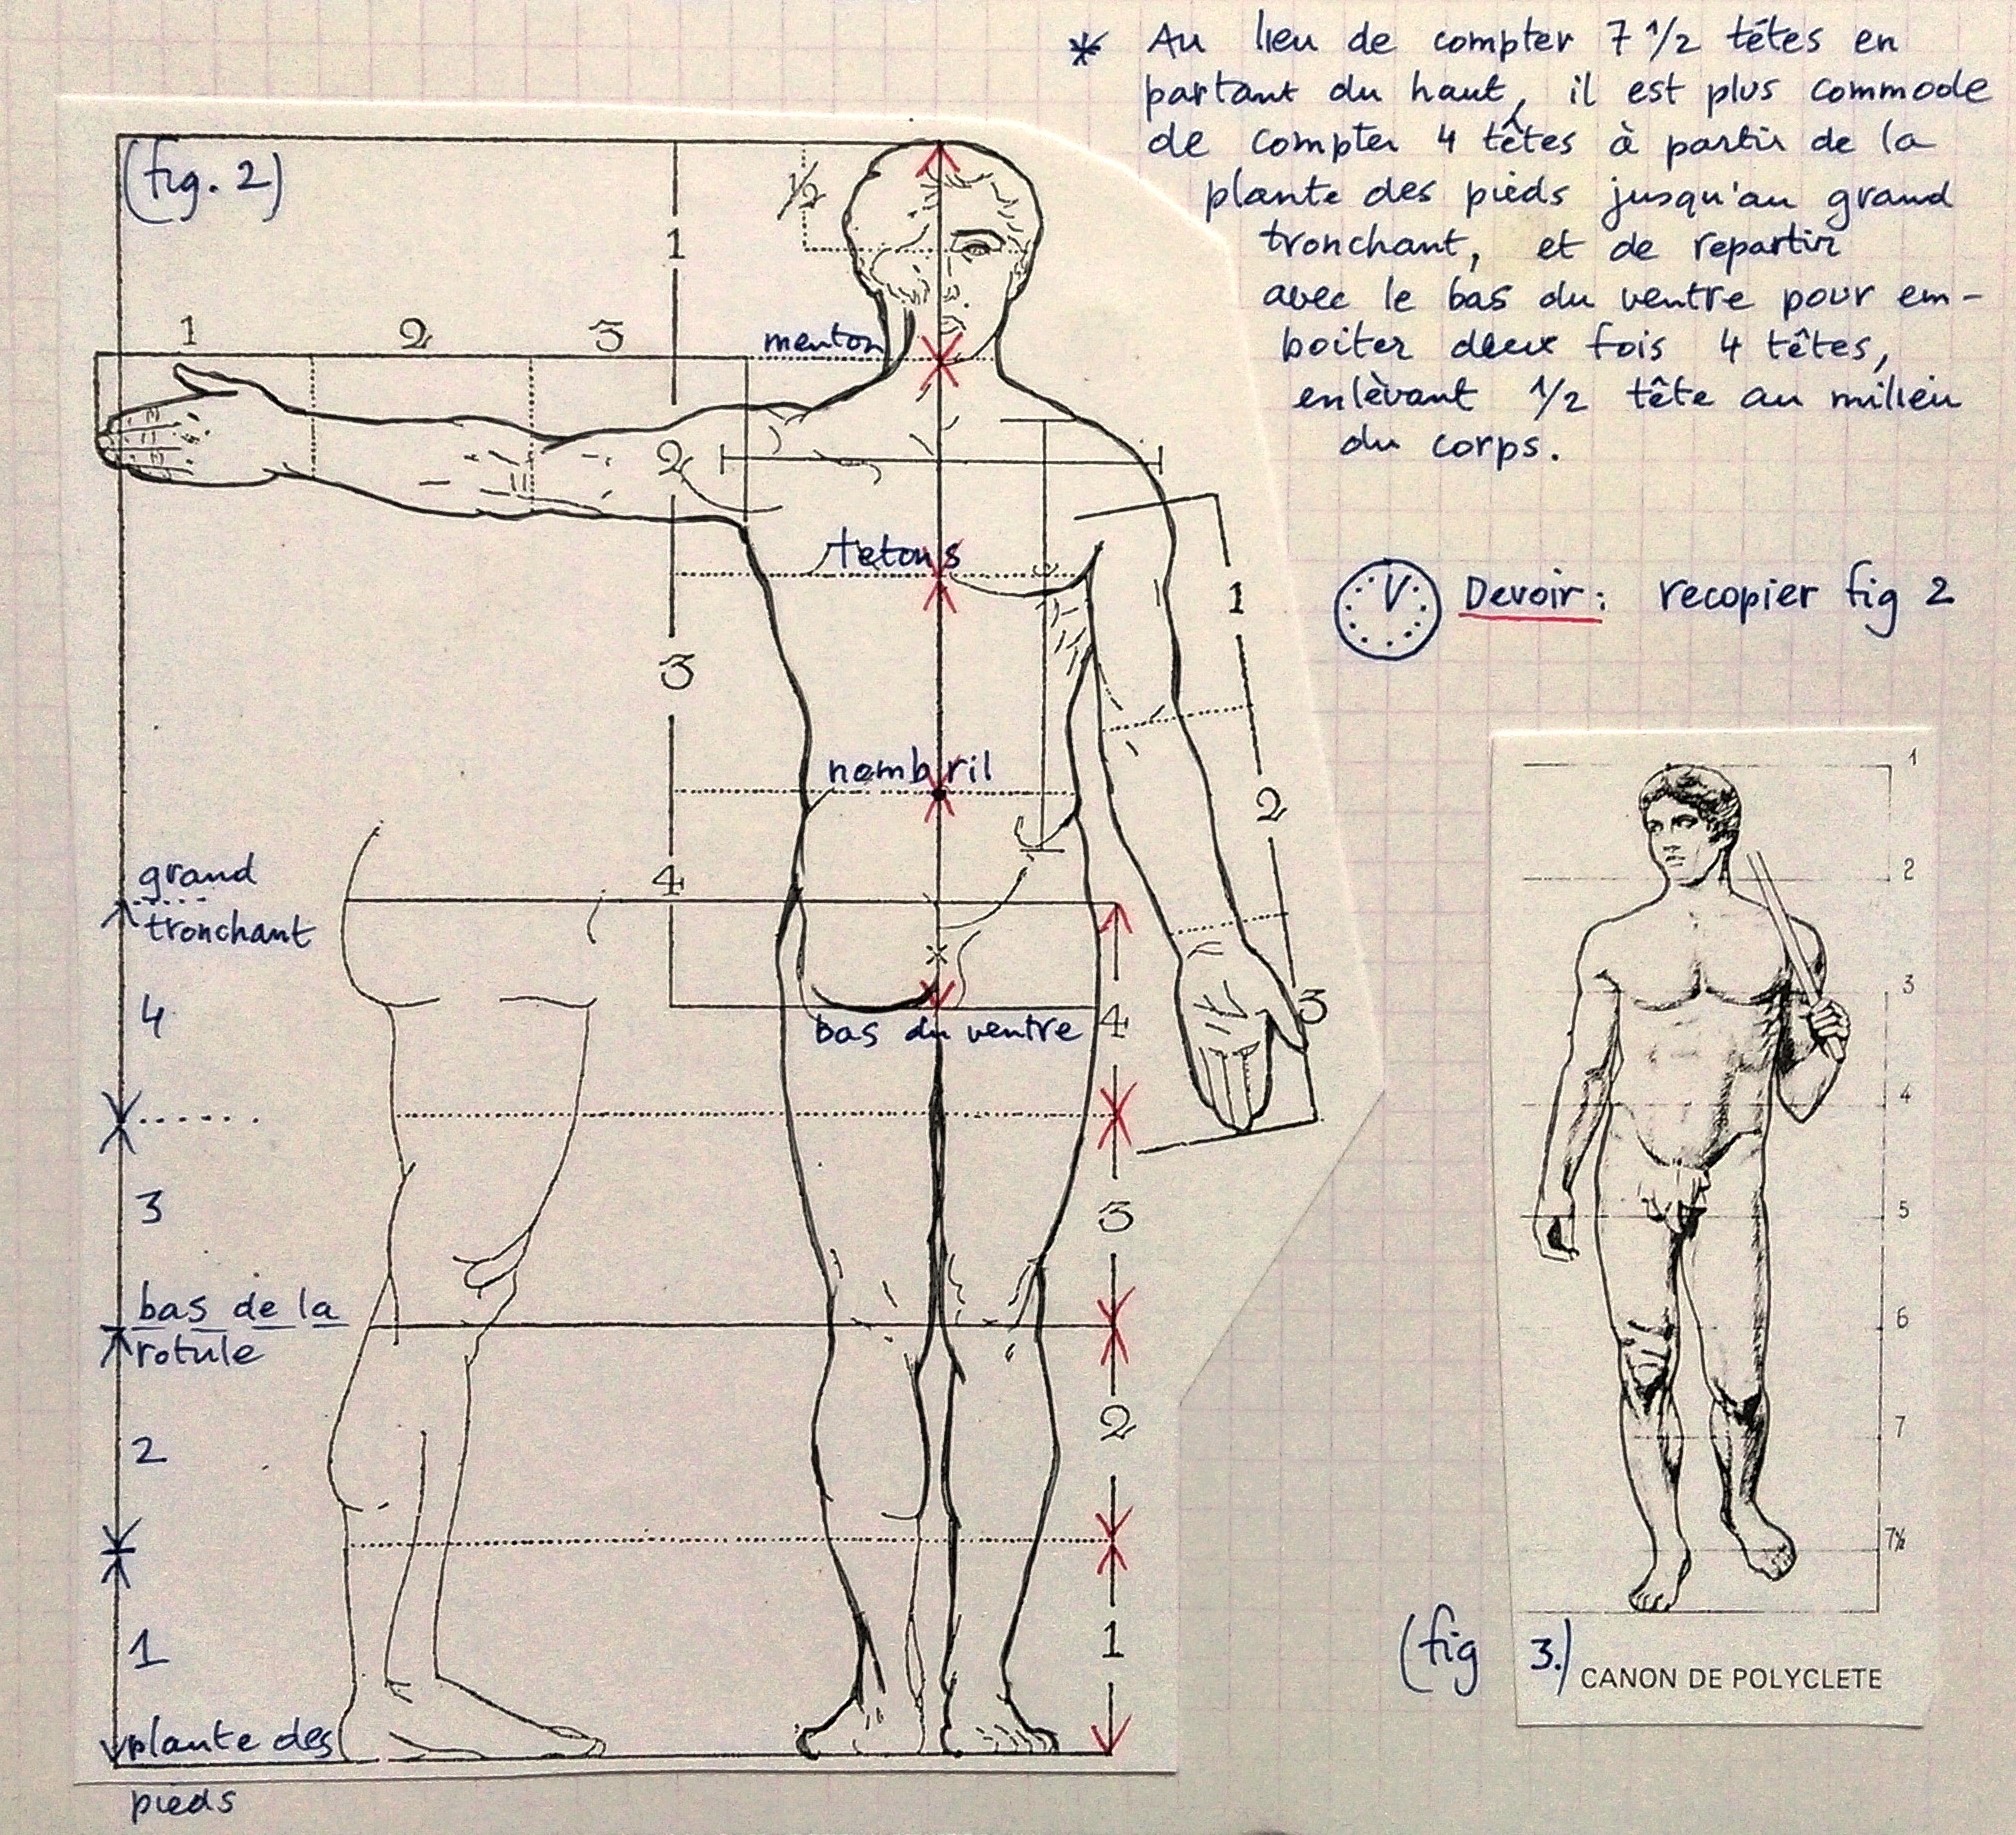 * Au lieu de compter 7 1/2 têtes en
partant du haut, il est plus commode
de compter 4 têtes à partir de la
plante des pieds jusqu'au grand
tronchant, et de repartir
avec le bas du ventre pour em-
boiter deux fois 4 têtes,
enlèvant 1/2 tête au milieu
du corps.
(fig. 2)
1/2
1
1 2 3
menton
2
tetons
1
3
nombril
2
4
grand
tronchant
3
4
bas du ventre
4
3
3
bas de la
rotule
2
2
1
1
plante des
pieds
V Devoir: recopier fig 2
1
2
3
4
5
6
7
7½
(fig 3.) CANON DE POLYCLETE